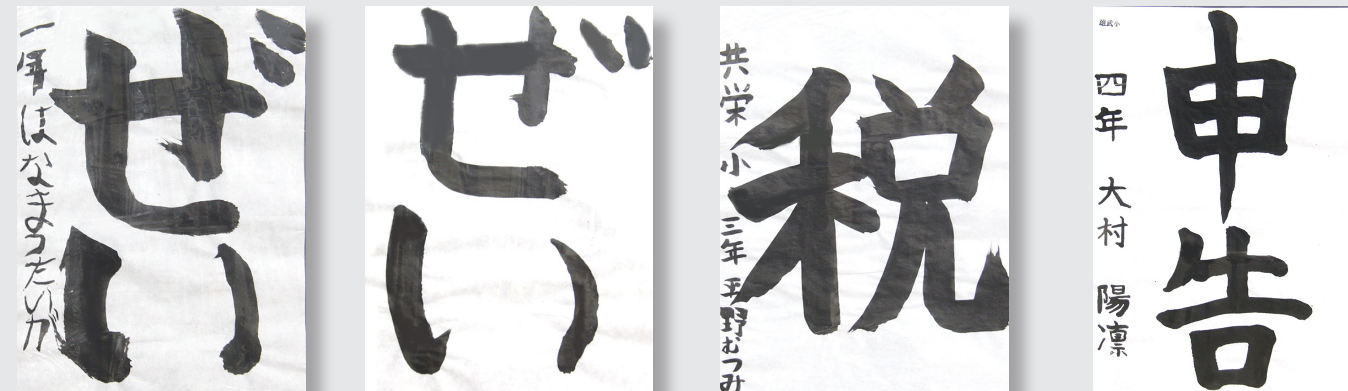 ぜい
一年 はなまつたいが
ぜい
税
共栄小 三年 平野むつみ
申告
四年 大村 陽凛